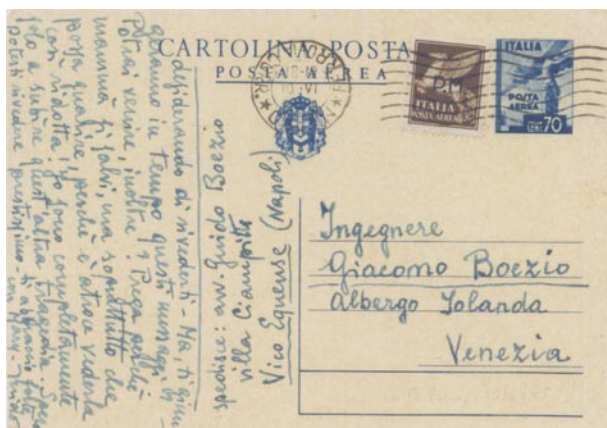 CARTOLINA POSTA
POSTA AEREA
P.M.
ITALIA
POSTA AEREA
ITALIA
POSTA
AEREA
CENT. 70
Ingegnere
Giacomo Boezio
Albergo Jolanda
Venezia
spedisce: avv. Guido Boezio
villa Ciampitti
Vico Equense (Napoli)
desiderando di rivederti - Ma, ti giun
geranno in tempo questi messaggi, e
potrai venire, inoltre? Prega perché
mamma si salvi, ma soprattutto che
possa guarire, perché è atroce vederla
così ridotta! Io sono completamente
solo a subire quest'altra tragedia. Spero
poterti rivedere prestissimo - ti abbraccio forte
con Mary -